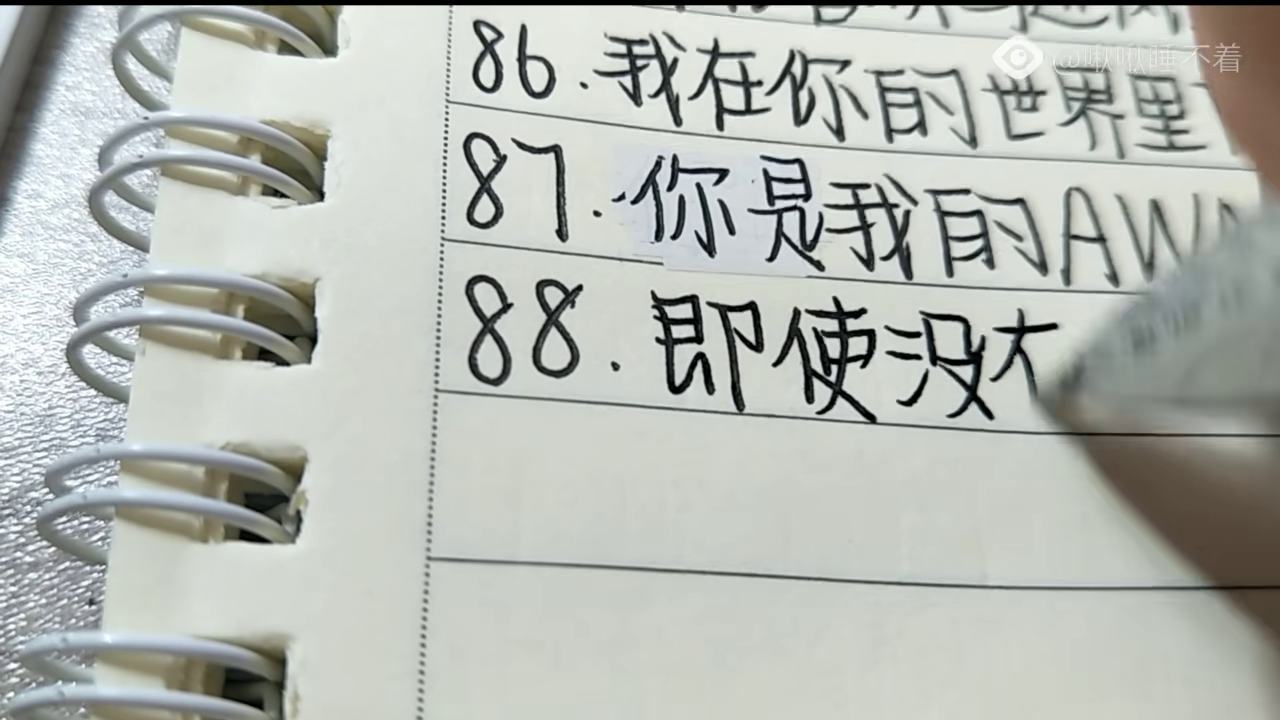 @啾啾睡不着
86.我在你的世界里
87.你是我的AW
88.即使没